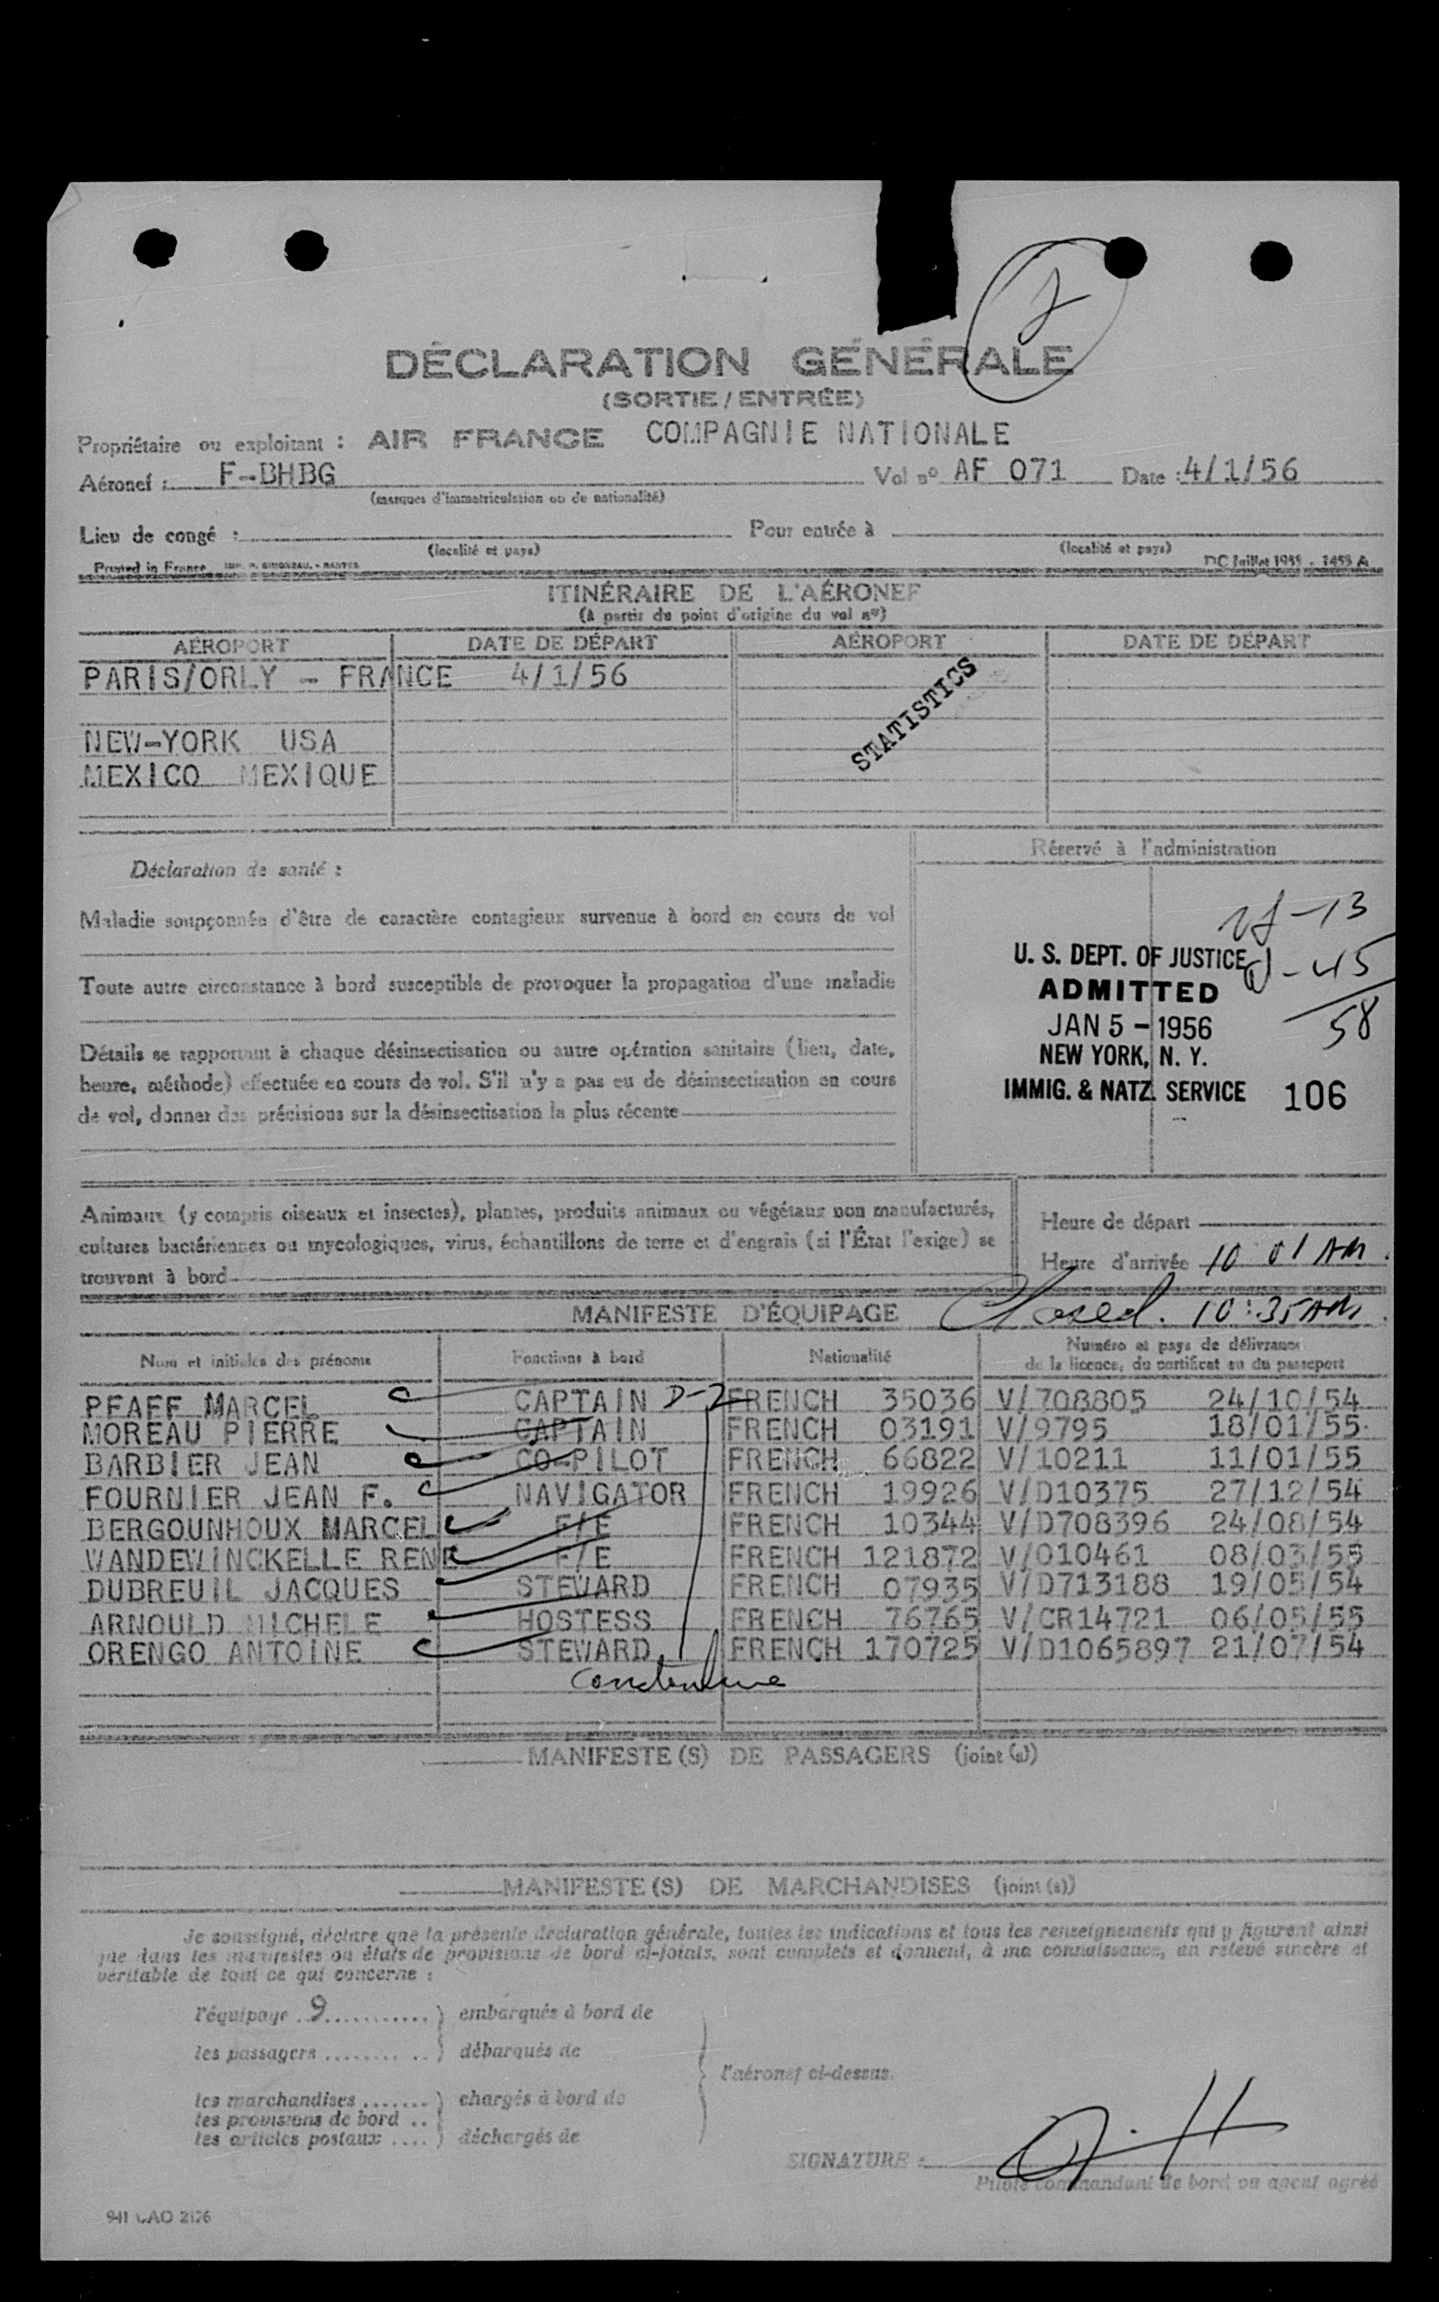 DÉCLARATION GÉNÉRALE
(SORTIE / ENTRÉE)
Propriétaire ou exploitant : AIR FRANCE COMPAGNIE NATIONALE
Aéronef : F-BHBG Vol nº AF 071 Date : 4/1/56
(marques d'immatriculation ou de nationalité)
Lieu de congé : Pour entrée à
(localité et pays) (localité et pays)
Printed in France DC Juillet 1955 - 1455 A
ITINÉRAIRE DE L'AÉRONEF
(à partir du point d'origine du vol nº)
AÉROPORT DATE DE DÉPART AÉROPORT DATE DE DÉPART
PARIS/ORLY - FRANCE 4/1/56
STATISTICS
NEW-YORK USA
MEXICO MEXIQUE
Réservé à l'administration
Déclaration de santé :
Maladie soupçonnée d'être de caractère contagieux survenue à bord en cours de vol
Toute autre circonstance à bord susceptible de provoquer la propagation d'une maladie
Détails se rapportant à chaque désinsectisation ou autre opération sanitaire (lieu, date,
heure, méthode) effectuée en cours de vol. S'il n'y a pas eu de désinsectisation en cours
de vol, donner des précisions sur la désinsectisation la plus récente
-13
U. S. DEPT. OF JUSTICE -45
ADMITTED
JAN 5 - 1956 58
NEW YORK, N. Y.
IMMIG. & NATZ. SERVICE 106
Animaux (y compris oiseaux et insectes), plantes, produits animaux ou végétaux non manufacturés,
cultures bactériennes ou mycologiques, virus, échantillons de terre et d'engrais (si l'État l'exige) se
trouvant à bord
Heure de départ
Heure d'arrivée 10 01 AM
MANIFESTE D'ÉQUIPAGE Closed. 10:35 AM
Nom et initiales des prénoms Fonctions à bord Nationalité Numéro et pays de délivrance
de la licence, du certificat ou du passeport
PFAFF MARCEL CAPTAIN D-2 FRENCH 35036 V/708805 24/10/54
MOREAU PIERRE CAPTAIN FRENCH 03191 V/9795 18/01/55
BARBIER JEAN CO-PILOT FRENCH 66822 V/10211 11/01/55
FOURNIER JEAN F. NAVIGATOR FRENCH 19926 V/D10375 27/12/54
BERGOUNHOUX MARCEL F/E FRENCH 10344 V/D708396 24/08/54
WANDEWINCKELLE RENE F/E FRENCH 121872 V/010461 08/03/55
DUBREUIL JACQUES STEWARD FRENCH 07935 V/D713188 19/05/54
ARNOULD MICHELE HOSTESS FRENCH 76765 V/CR14721 06/05/55
ORENGO ANTOINE STEWARD FRENCH 170725 V/D1065897 21/07/54
MANIFESTE(S) DE PASSAGERS (joint (s))
MANIFESTE(S) DE MARCHANDISES (joint (s))
Je soussigné, déclare que la présente déclaration générale, toutes les indications et tous les renseignements qui y figurent ainsi
que dans les manifestes ou états de provisions de bord ci-joints, sont complets et donnent, à ma connaissance, un relevé sincère et
véritable de tout ce qui concerne :
l'équipage . 9 ........... ) embarqués à bord de
les passagers ........ .. ) débarqués de
l'aéronef ci-dessus.
les marchandises ....... ) chargés à bord de
les provisions de bord ..
les articles postaux .... ) déchargés de
SIGNATURE :
Pilote commandant de bord ou agent agréé